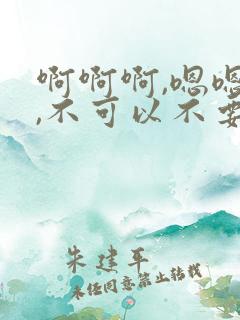 啊啊啊,嗯嗯
,不可以不要
朱建平
未经同意禁止转载